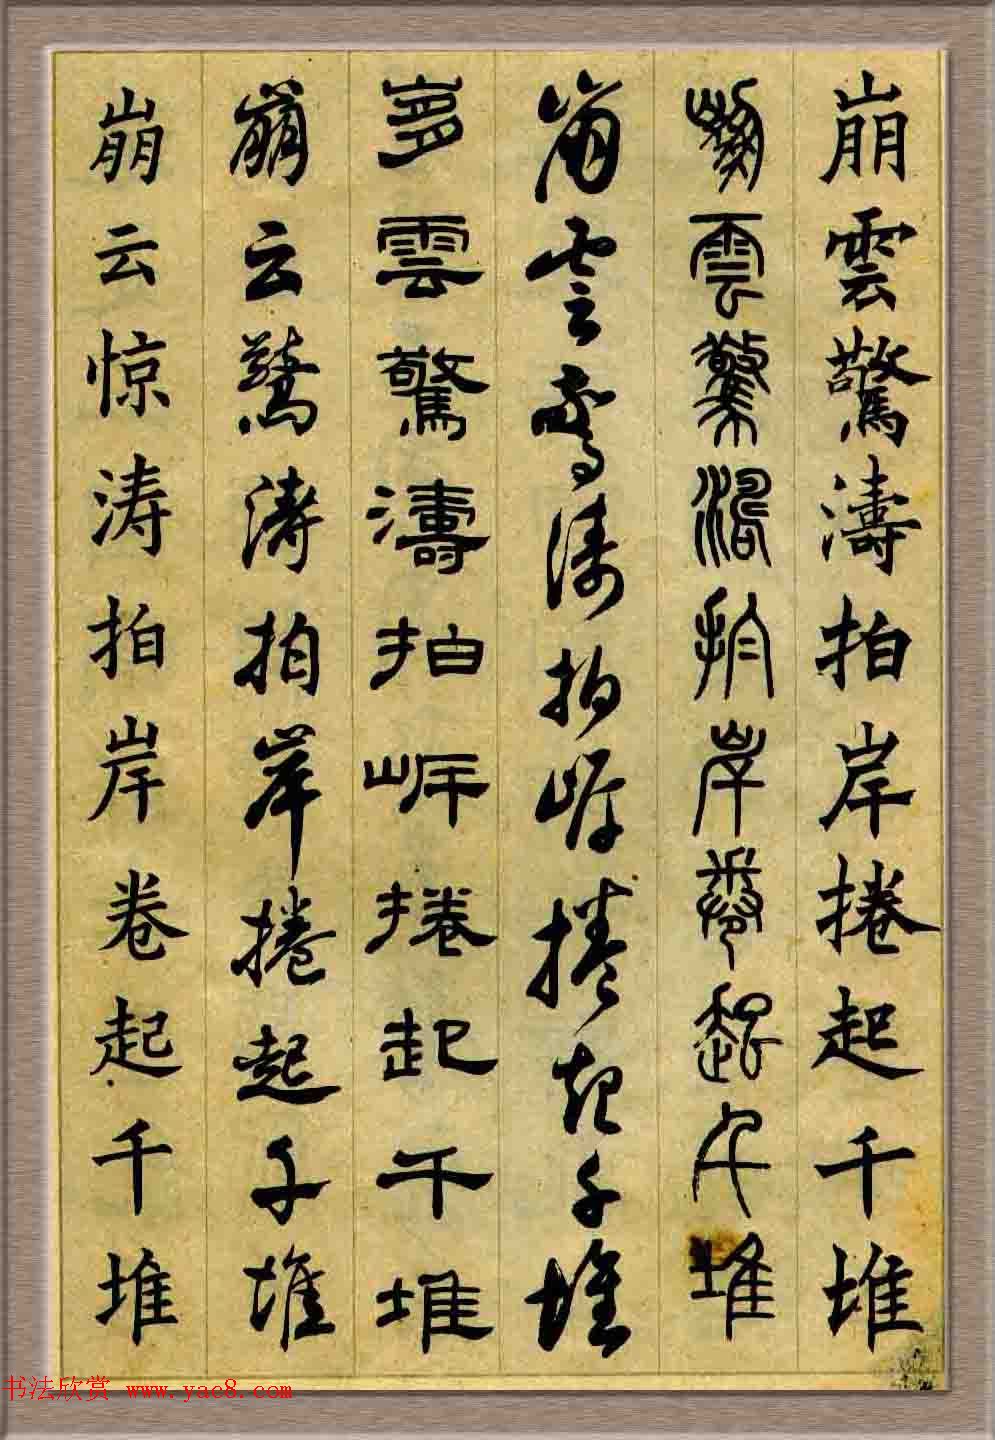 崩雲驚濤拍岸捲起千堆
崩雲驚濤拍岸卷起千堆
崩雲驚濤拍岸捲起千堆
崩雲驚濤拍岸捲起千堆
崩云驚涛拍岸捲起千堆
崩云惊涛拍岸卷起千堆
书法欣赏 www.yac8.com